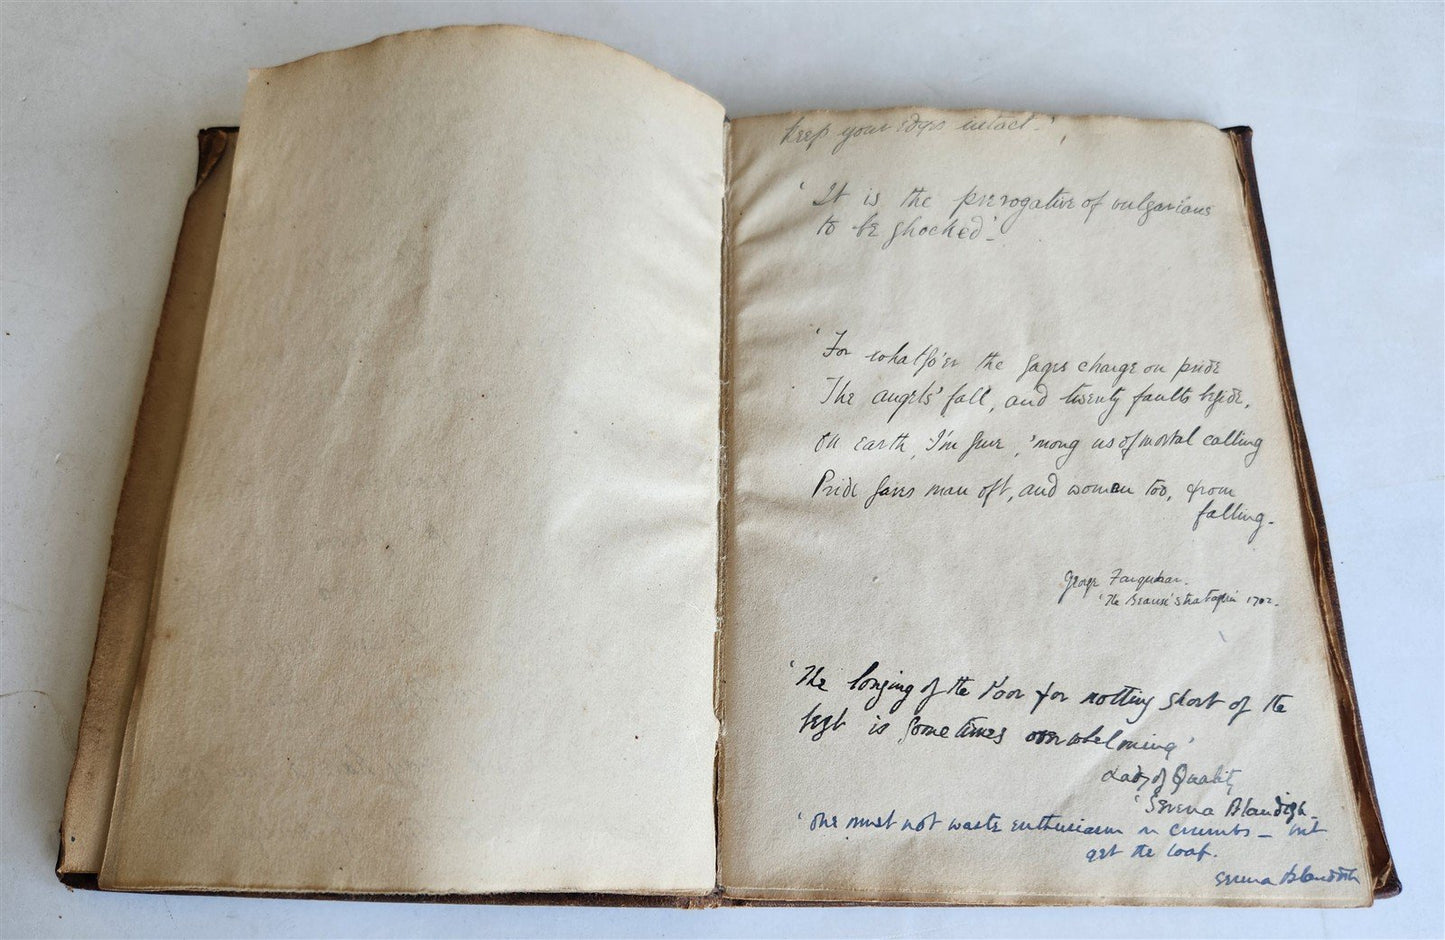 keep your edges intact.',
'It is the prerogative of vulgarians
to be shocked'-
'For whatso'er the sages charge on pride
The angels' fall, and twenty faults beside,
On earth, I'm sure, 'mong us of mortal calling
Pride saves man oft, and woman too, from
falling.
George Farquhar.
'The Beaux' Stratagem 1702.
'The longing of the Poor for nothing short of the
best is sometimes overwhelming'
Lady of Quality
'Serena Blandish-
'One must not waste enthusiasm on crumbs - but
get the loaf.
Serena Blandish